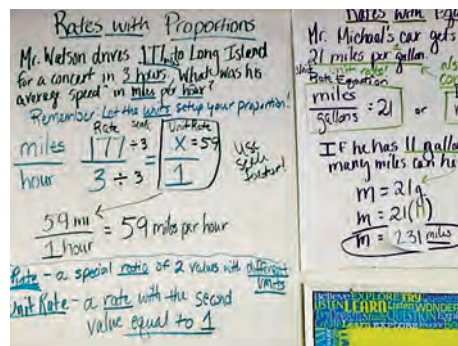 Rates with Proportions
Mr. Watson drives 177 to Long Island
for a concert in 3 hours. What was his
average speed in miles per hour?
Remember Let the units setup your proportion!
Rate
Unit Rate
miles 177 ÷3 = x = 59
hour 3 ÷ 3 1
use
59 mi = 59 miles per hour
1 hour
Rate - a special ratio of 2 values with different
units
Unit Rate - a rate with the second
value equal to 1
Rates with
Mr. Michael's car gets
21 miles per gallon.
Rate Equation
miles = 21 or
gallons
If he has 11
many miles can he
m = 21g
m = 21(11)
m = 231 miles
believe EXPLORE TRY
LISTEN LEARN Listen WONDER
QUESTION